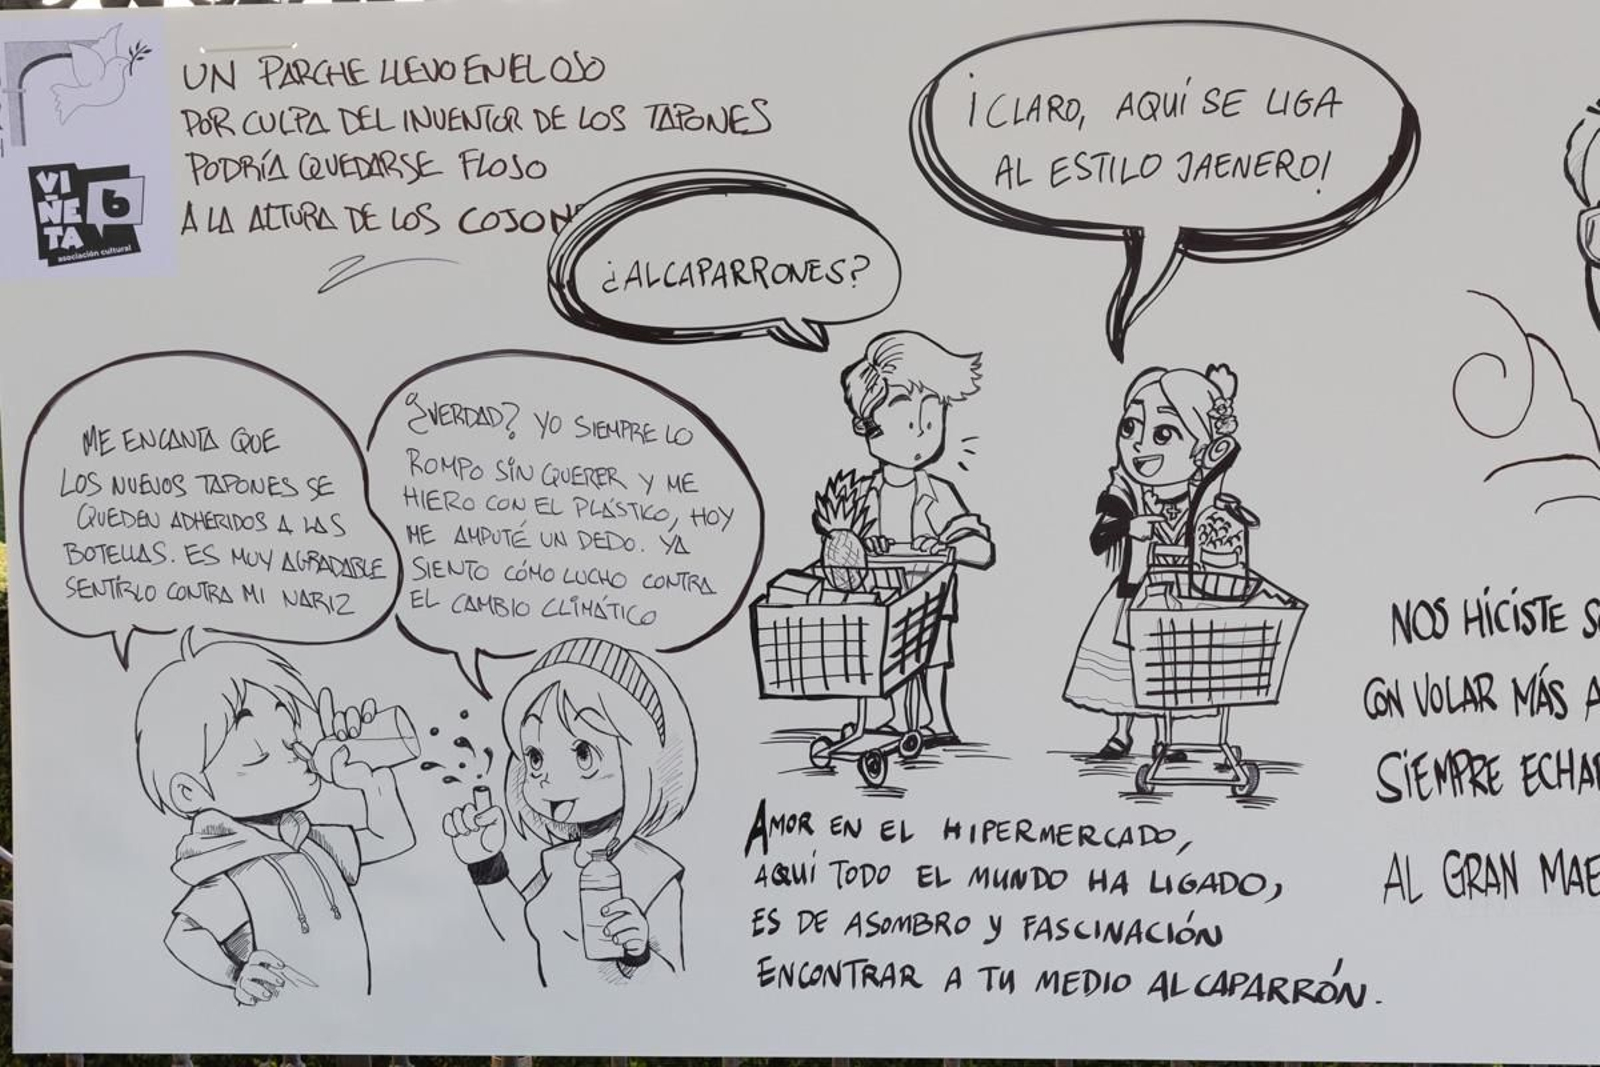 UN PARCHE LLEVO EN EL OJO
POR CULPA DEL INVENTOR DE LOS TAPONES
PODRÍA QUEDARSE FLOJO
A LA ALTURA DE LOS
VI
ÑE
TA
6
asociación cultural
¿ALCAPARRONES?
¡CLARO, AQUÍ SE LIGA
AL ESTILO JAENERO!
ME ENCANTA QUE
LOS NUEVOS TAPONES SE
QUEDEN ADHERIDOS A LAS
BOTELLAS. ES MUY AGRADABLE
SENTIRLO CONTRA MI NARIZ
¿VERDAD? YO SIEMPRE LO
ROMPO SIN QUERER Y ME
HIERO CON EL PLÁSTICO, HOY
ME AMPUTÉ UN DEDO. YA
SIENTO CÓMO LUCHO CONTRA
EL CAMBIO CLIMÁTICO
AMOR EN EL HIPERMERCADO,
AQUÍ TODO EL MUNDO HA LIGADO,
ES DE ASOMBRO Y FASCINACIÓN
ENCONTRAR A TU MEDIO ALCAPARRÓN.
NOS HICISTE
CON VOLAR MÁS
SIEMPRE
AL GRAN